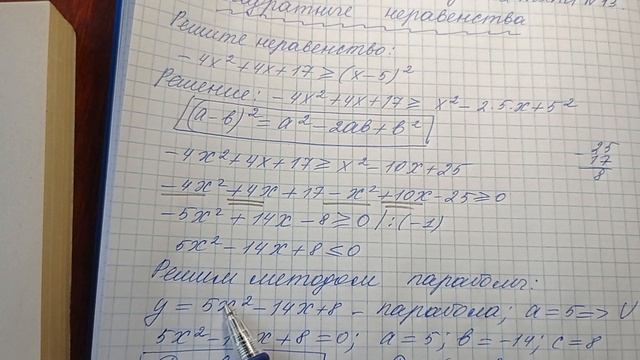 неравенства
Решите неравенство:
-4x²+4x+17 ≥ (x-5)²
Решение: -4x²+4x+17 ≥ x²-2·5·x+5²
(a-в)² = a²-2aв+в²
-4x²+4x+17 ≥ x²-10x+25
-25
17
8
-4x²+4x+17-x²+10x-25 ≥ 0
-5x²+14x-8 ≥ 0 | :(-1)
5x²-14x+8 ≤ 0
Решим методом параболы:
y = 5x²-14x+8 - парабола; a=5 => U
5x²-1 x+8=0; a=5; в=-14; c=8